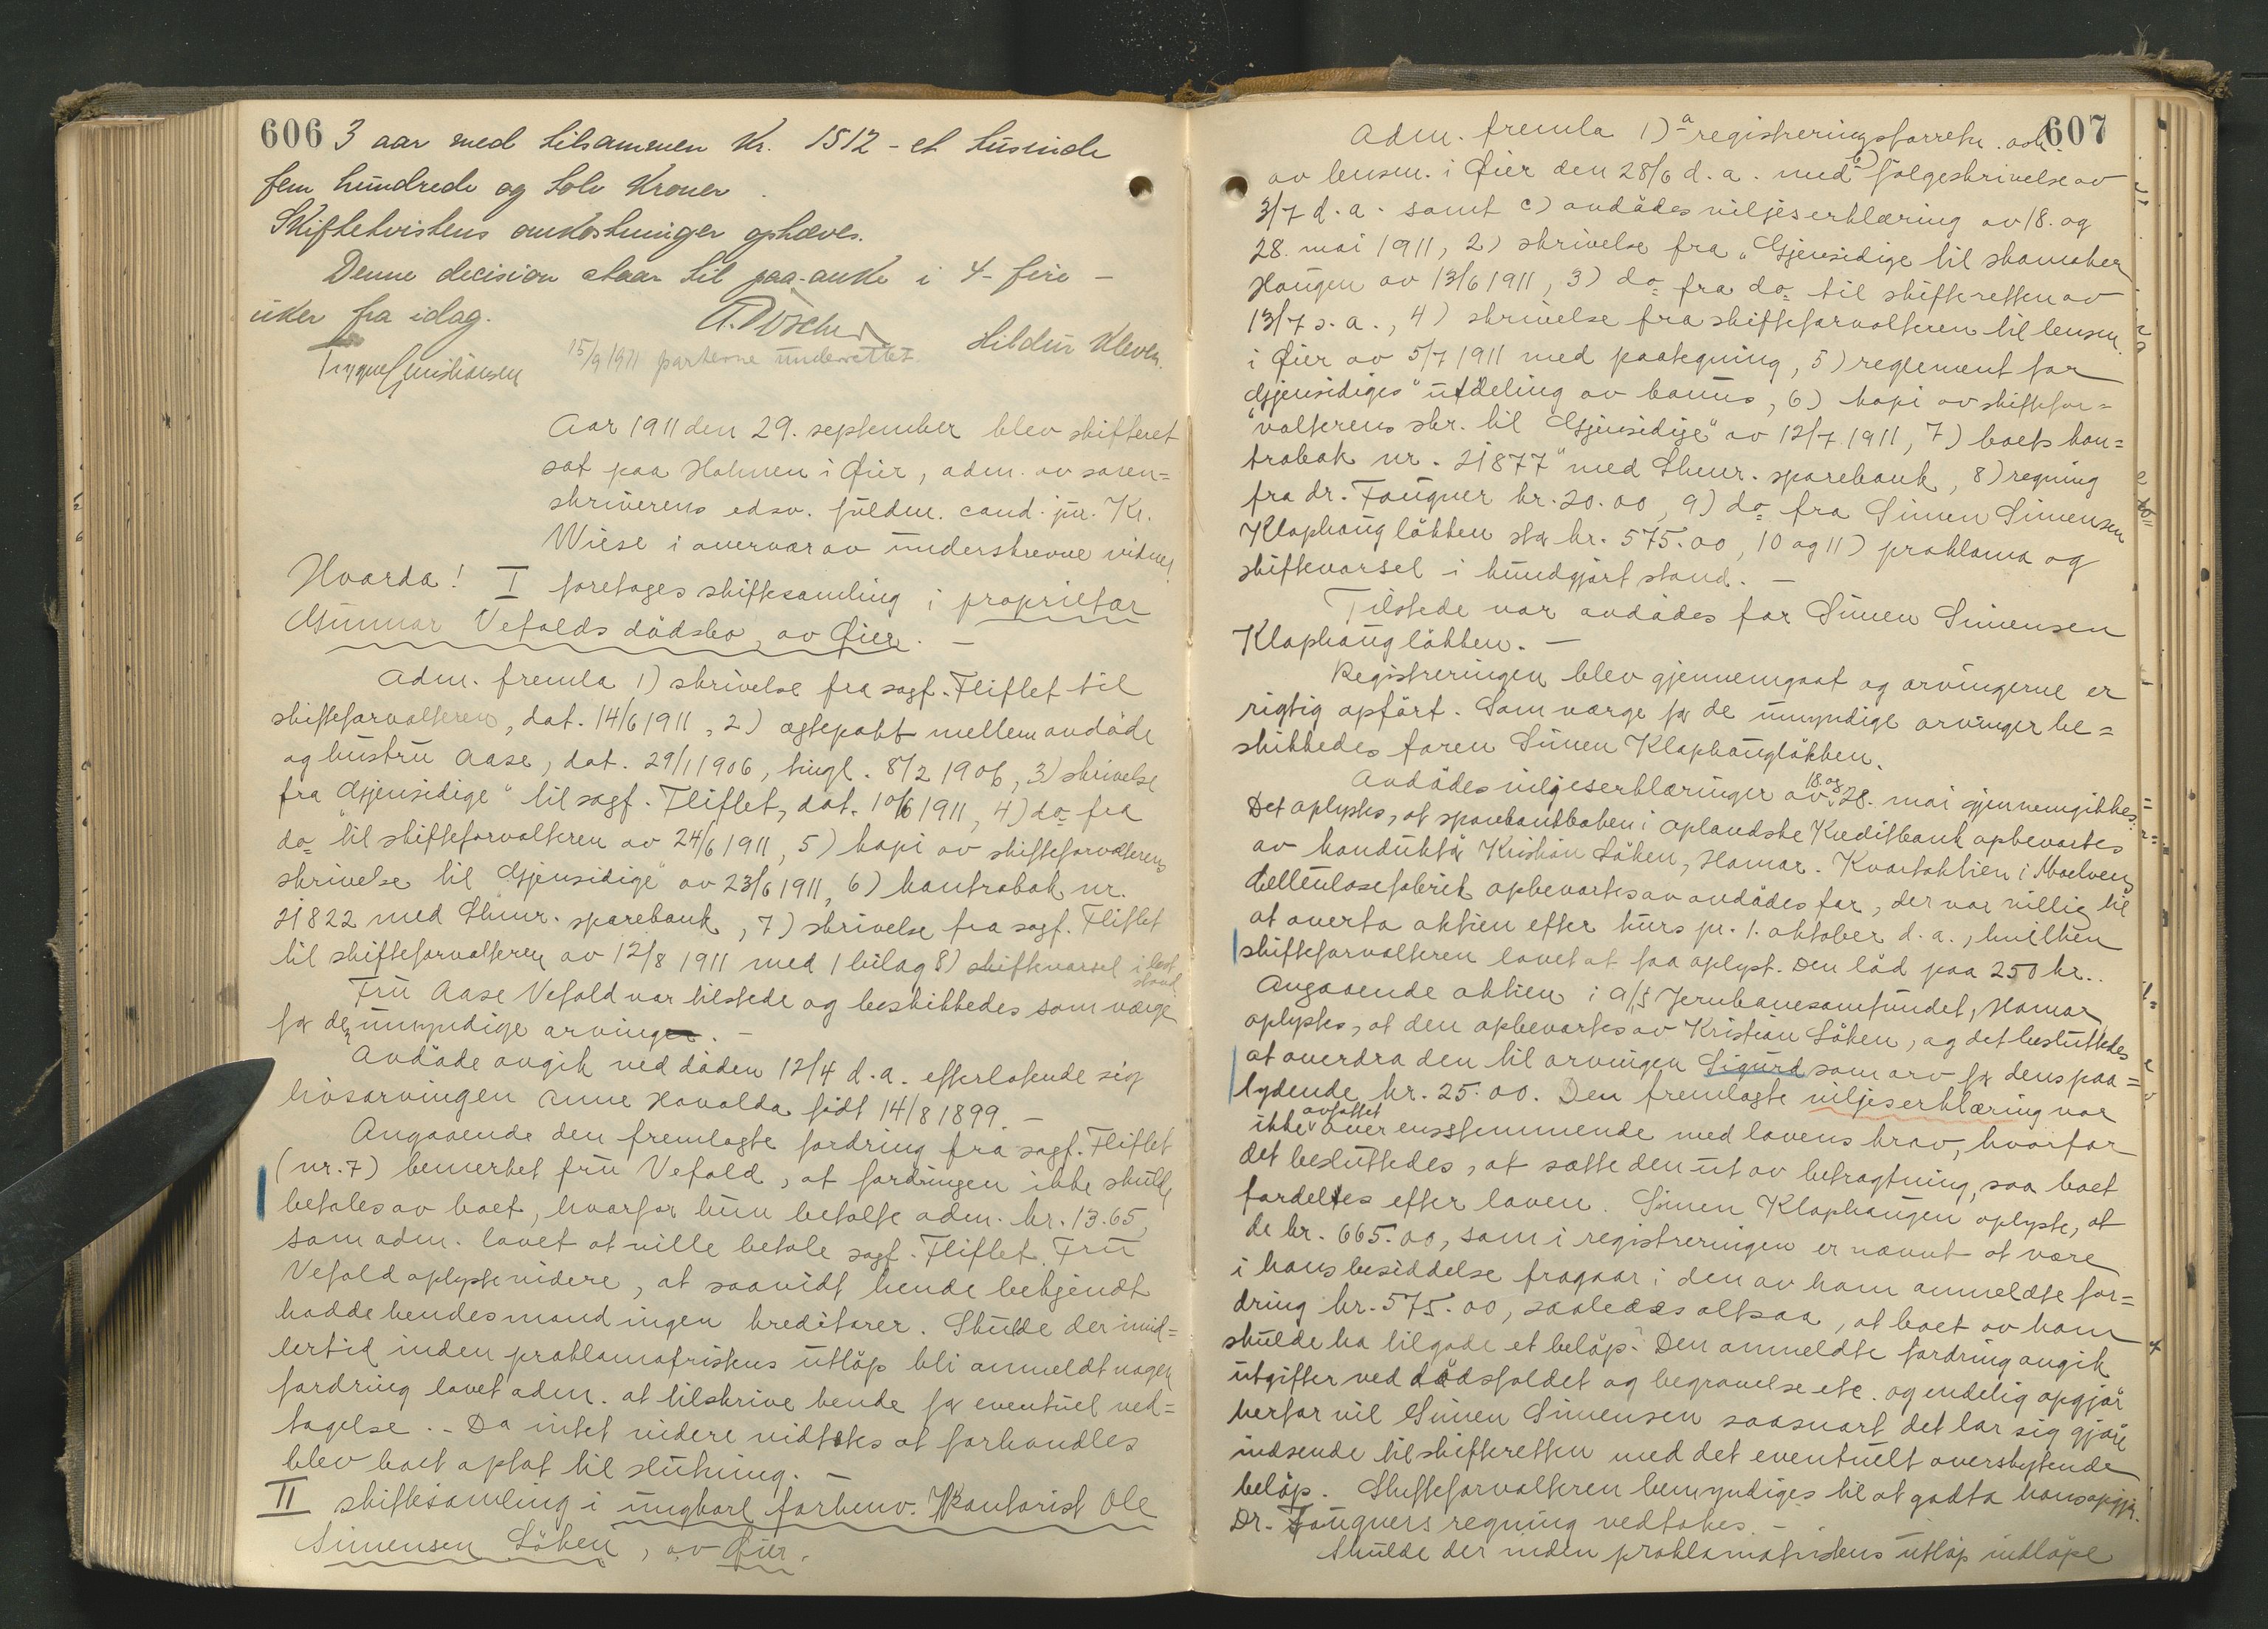 606
3 aar med tilsammen Kr. 1512 - et tusinde
fem hundrede og tolv Kroner.
Skiftetvistens omkostninger ophæves.
Denne decision staar til paa-anke i 4 - fire -
uker fra idag.
Hildur Kleven.
15/9 1911 parterne underrettet.
Aar 1911 den 29. september blev skifteret
sat paa Holmen i Øier, adm. av soren=
skriverens edsv. fuldm. cand. jur. Kr.
Wiese i overvær av underskrevne vidner
Hvorda! I foretages skiftesamling i proprietær
Gunnar Vefalds dödsbo, av Øier. -
Adm. fremla 1) skrivelse fra sagf. Fliflet til
skifteforvalteren, dat. 14/6 1911, 2) ægtepakt mellem avdöde
og hustru Aase, dat. 29/1 1906, tingl. 8/2 1906, 3) skrivelse
fra "Gjensidige" til sagf. Fliflet, dat. 10/6 1911, 4) do fra
do til skifteforvalteren av 24/6 1911, 5) kopi av skifteforvalterens
skrivelse til "Gjensidige" av 23/6 1911, 6) kontrabok nr.
21822 med Lhmr. sparebank, 7) skrivelse fra sagf. Fliflet
til skifteforvalteren av 12/8 1911 med 1 bilag 8) skiftevarsel i
stand
Fru Aase Vefald var tilstede og beskikkedes som værge
for den umyndige arving. -
Avdöde avgik ved döden 12/4 d.a. efterlatende sig
livsarvingen Anne Havalda födt 14/8 1899. -
Angaaende den fremlagte fordring fra sagf. Fliflet
(nr. 7) bemerket fru Vefald, at fordringen ikke skulle
betales av boet, hvorfor hun betalte adm. kr. 13.65,
som adm. lovet at ville betale sagf. Fliflet. Fru
Vefald oplyste videre, at saavidt hende bekjendt
hadde hendes mand ingen kreditorer. Skulde der imid=
lertid inden proklamafristens utlöp bli anmeldt nogen
fordring lovet adm. at tilskrive hende for eventuel ved=
tagelse. - Da intet videre vidstes at forhandles
blev boet optat til slutning. -
II skiftesamling i ungkarl forhenv. Kontorist Ole
Simensen Löken, av Øier.
607
Adm. fremla 1) a registreringsforretn.
av lensm. i Øier den 28/6 d.a. med b) fölgeskrivelse av
3/7 d.a. samt c) avdödes viljeserklæring av 18. og
28. mai 1911, 2) skrivelse fra "Gjensidige til skomaker
Haugen av 13/6 1911, 3) do fra do til skifteretten av
13/7 s.a., 4) skrivelse fra skifteforvalteren til lensm.
i Øier av 5/7 1911 med paategning, 5) reglement for
"Gjensidiges" utdeling av bonus, 6) kopi av skiftefor=
valterens skr. til "Gjensidige" av 12/7 1911, 7) boets kon=
trabok nr. 21877 med Lhmr. sparebank, 8) regning
fra dr. Fougner kr. 20.00, 9) do fra Simen Simensen
Klophauglökken stor kr. 575.00, 10 og 11) proklama og
skiftevarsel i kundgjort stand. -
Tilstede var avdödes far Simen Simensen
Klophauglökken. -
Registreringen blev gjennemgaat og arvingerne er
rigtig opfört. Som værge for de umyndige arvinger be=
skikkedes faren Simen Klophauglökken.
Avdödes viljeserklæringer av 18. og 28. mai gjennemgikkes.
Det oplystes, at sparebankboken i Oplandske Kreditbank opbevartes
av konduktör Kristian Löken, Hamar. Kvartaktien i Moelvens
Cellulosefabrik opbevartes av avdödes far, der var villig til
at overta aktien efter kurs pr. 1. oktober d.a., hvilken
skifteforvalteren lovet at faa oplyst. Den löd paa 250 kr..
Angaaende aktien i A/S Jernbanesamfundet, Hamar
oplystes, at den opbevartes av Kristian Löken, og det besluttedes
at overdra den til arvingen Sigurd som arv for dens paa=
lydende kr. 25.00. Den fremlagte viljeserklæring var
ikke avfattet overensstemmende med lovens krav, hvorfor
det besluttedes, at sætte den ut av betragtning, saa boet
fordeltes efter loven. Simen Klophaugen oplyste, at
de kr. 665.00, som i registreringen er nævnt at være
i hans besiddelse fragaar i den av ham anmeldte for=
dring kr. 575.00, saaledes altsaa, at boet av ham
skulde ha tilgode et belöp. Den anmeldte fordring angik
utgifter ved dödsfaldet og begravelse etc. og endelig opgjör
herfor vil Simen Simensen saasnart det lar sig gjöre
indsende til skifteretten med det eventuelt overskytende
belöp. Skifteforvalteren bemyndiges til at godta hans opgjör.
Dr. Fougners regning vedtokes. -
Skulde der inden proklamafristens utlöp indlöpe